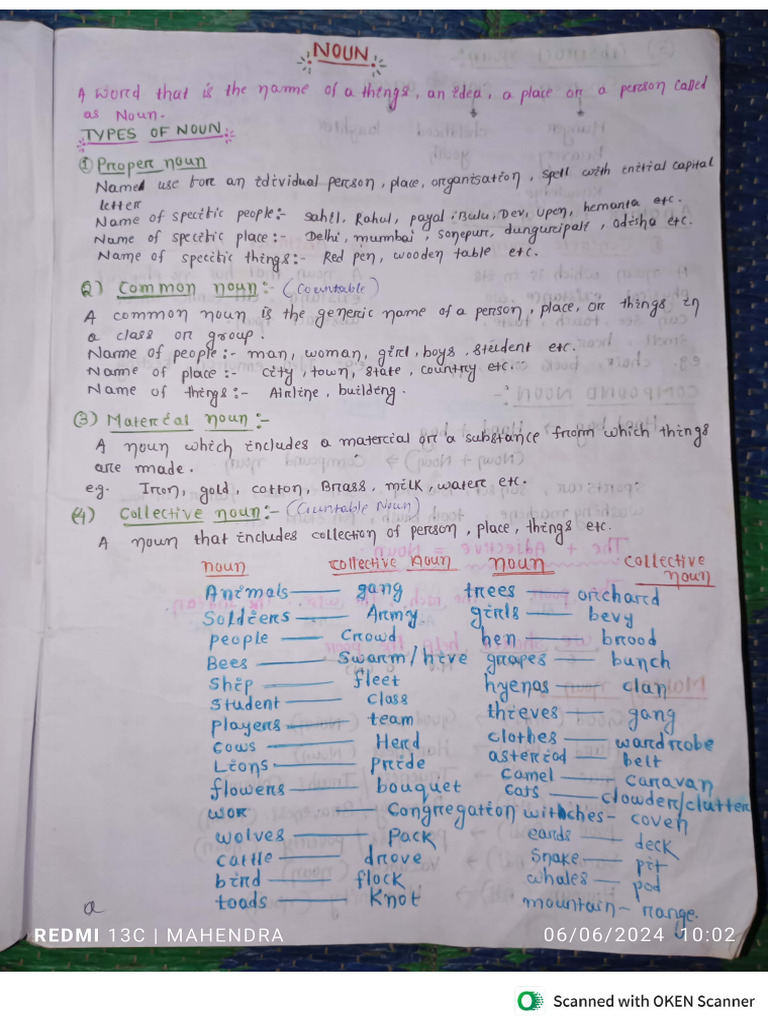 NOUN
A word that is the name of a things, an idea, a place or a person called
as Noun.
TYPES OF NOUN:
① Proper noun
Named use fore an idividual person, place, organisation, spell with initial capital
letter
Name of specific people:- Sahil, Rahul, payal, Bulu, Dev, upen, hemanta etc.
Name of specific place:- Delhi, mumbai, sonepur, dunguripali, odisha etc.
Name of specific things:- Red pen, wooden table etc.
2) Common noun:- (Countable)
A common noun is the generic name of a person, place, or things in
a class or group.
Name of people:- man, woman, girl, boys, student etc.
Name of place:- city, town, state, country etc.
Name of things:- Airline, building.
(3) Material noun:-
A noun which includes a material or a substance from which things
are made.
e.g. Iron, gold, cotton, Brass, milk, water etc.
(4) Collective noun:- (Countable Noun)
A noun that includes collection of person, place, things etc.
noun collective Noun noun collective noun
Animals — gang trees — orchard
Soldiers — Army girls — bevy
people — Crowd hen — brood
Bees — Swarm/hive grapes — bunch
Ship — fleet hyenas — clan
Student — class thieves — gang
players — team clothes — wardrobe
Cows — Herd asteriod — belt
Lions — pride camel — caravan
flowers — bouquet cats — clowder/clutter
wor — Congregation witches - coven
wolves — Pack cards — deck
cattle — drove Snake — pit
bird — flock whales — pod
toads — Knot mountain - range.
a
REDMI 13C | MAHENDRA 06/06/2024 10:02
Scanned with OKEN Scanner